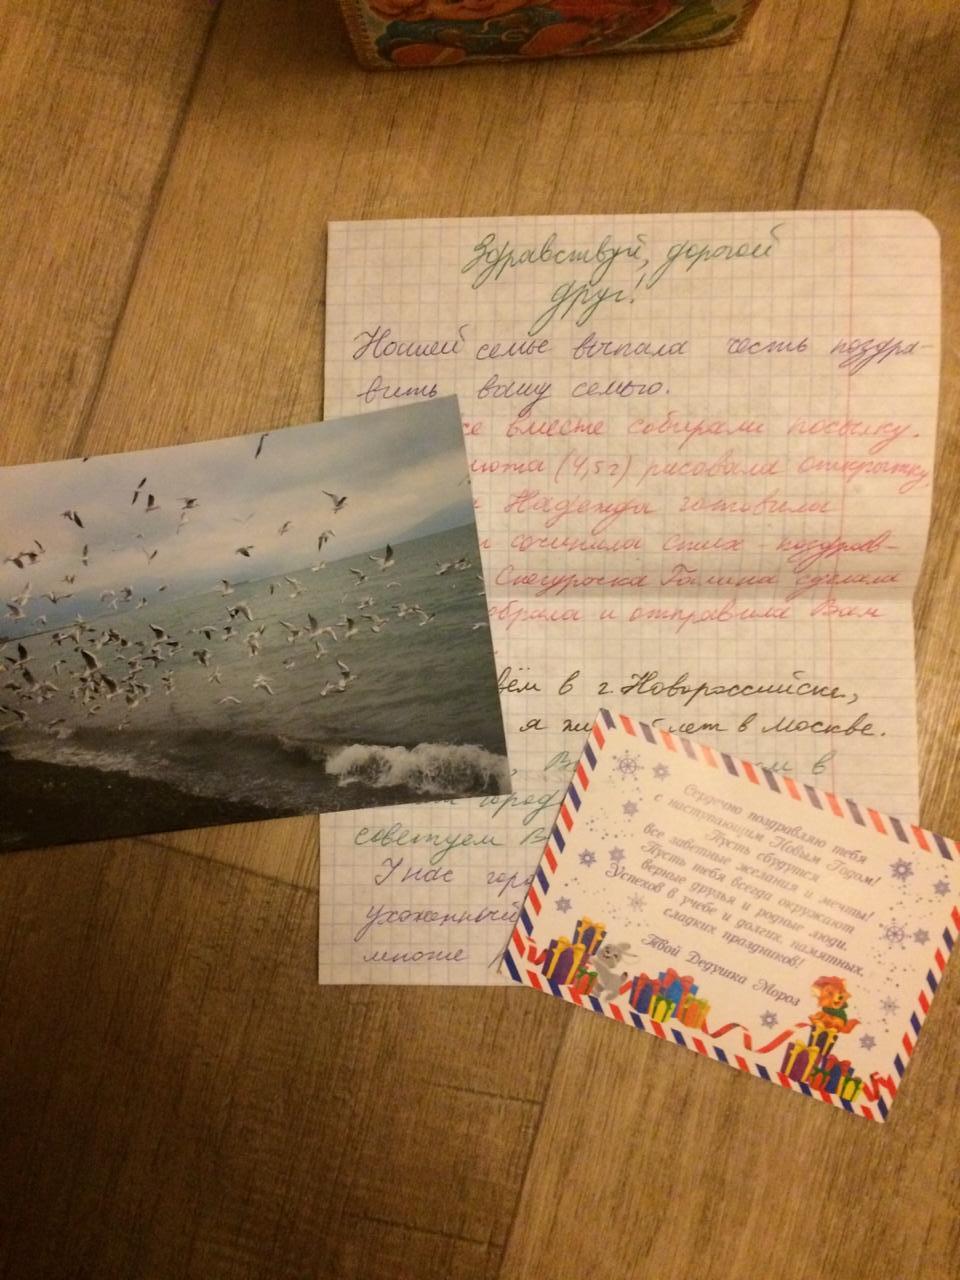 Здравствуй, дорогой
друг!
Нашей семье выпала честь поздра-
вить вашу семью.
се вместе собирали посылку.
юта (4,5 г) рисовала открытку,
Надежда готовила
и сочинила стих поздрав-
Снегурочка Галина сделала
обрала и отправила Вам
вём в г. Новороссийске,
я жи лет в Москве.
в
город
советуем В
У нас горо
ухоженный
много
Сердечно поздравляю тебя
с наступающим Новым Годом!
Пусть сбудутся
все заветные желания и мечты!
Пусть тебя всегда окружают
верные друзья и родные люди.
Успехов в учебе и долгих, памятных,
сладких праздников!
Твой Дедушка Мороз